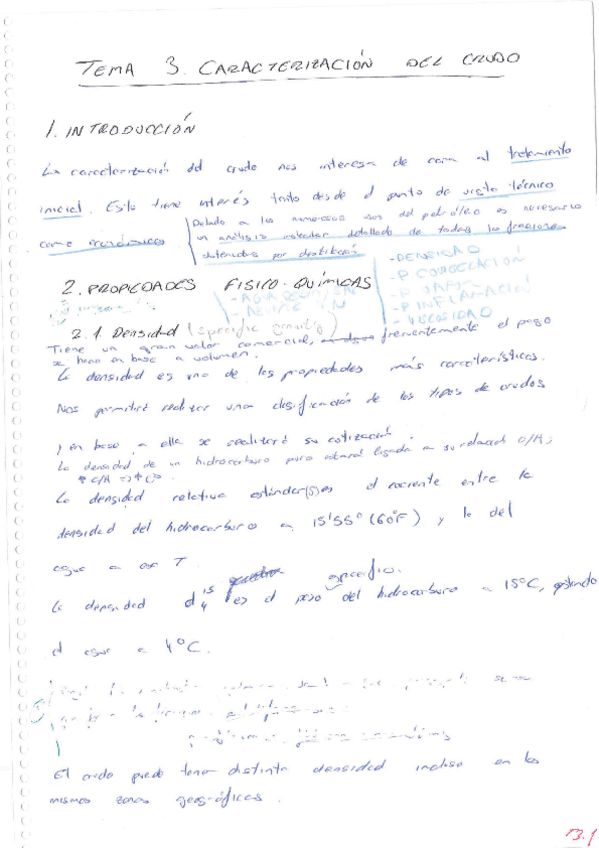 TEMA 3. CARACTERIZACIÓN DEL CRUDO
1. INTRODUCCIÓN
La caracterización del crudo nos interesa de cara al tratamiento
inicial. Esto tiene interés tanto desde el punto de vista técnico
como económico.
Debido a los numerosos usos del petróleo es necesario
un análisis molecular detallado de todas las fracciones
obtenidas por destilación
2. PROPIEDADES FISICO-QUÍMICAS
- DENSIDAD
- P CONGELACIÓN
- P VAPOR
- P INFLAMACIÓN
- VISCOSIDAD
2.1. Densidad (specific gravity)
Tiene un gran valor comercial, frecuentemente el pago
se hace en base a volumen.
La densidad es una de las propiedades más características.
Nos permitirá realizar una clasificación de los tipos de crudos
y en base a ella se realizará su cotización.
La densidad de un hidrocarburo puro estará ligada a su relación C/H;
↑ C/H =>
La densidad relativa estándar(S) es el cociente entre la
densidad del hidrocarburo a 15'55º (60ºF) y la del
agua a esa T.
La densidad d 15 4 es el peso específico del hidrocarburo a 15ºC,
el agua a 4ºC.
El crudo puede tener distinta densidad incluso en las
mismas zonas geográficas.
3.1